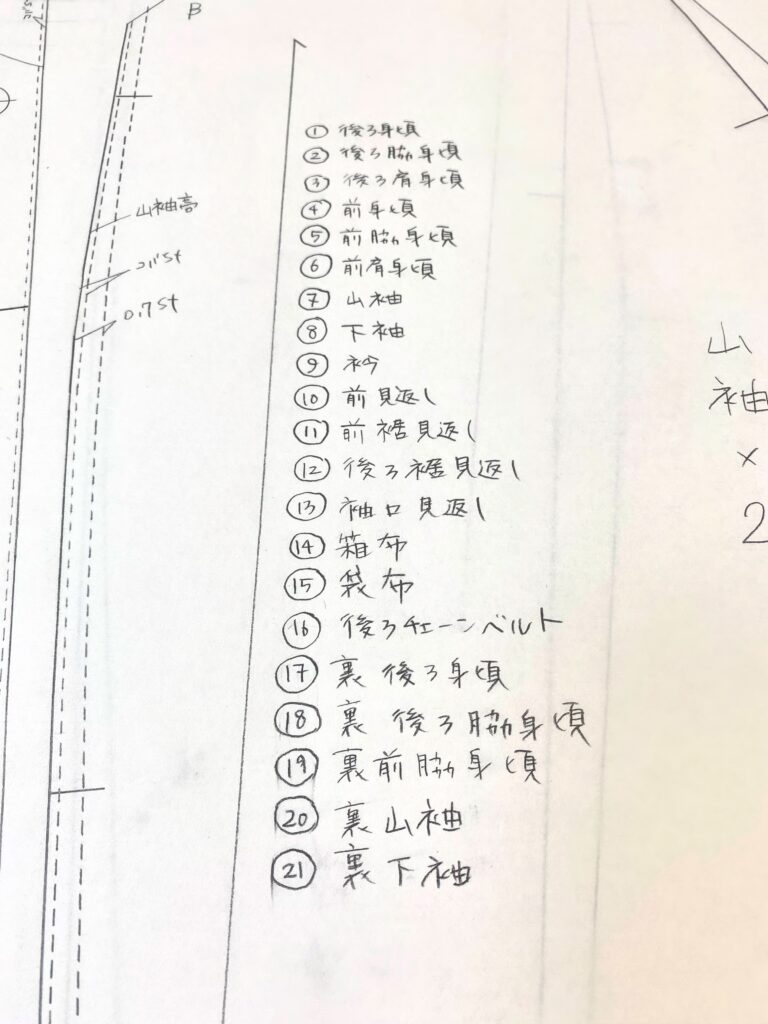 B
山袖高
コバSt
0.7St
① 後ろ身頃
② 後ろ脇身頃
③ 後ろ肩身頃
④ 前身頃
⑤ 前脇身頃
⑥ 前肩身頃
⑦ 山袖
⑧ 下袖
⑨ 衿
⑩ 前見返し
⑪ 前裾見返し
⑫ 後ろ裾見返し
⑬ 袖口見返し
⑭ 箱布
⑮ 袋布
⑯ 後ろチェーンベルト
⑰ 裏後ろ身頃
⑱ 裏 後ろ脇身頃
⑲ 裏前脇身頃
⑳ 裏山袖
㉑ 裏下袖
山
袖
×
2